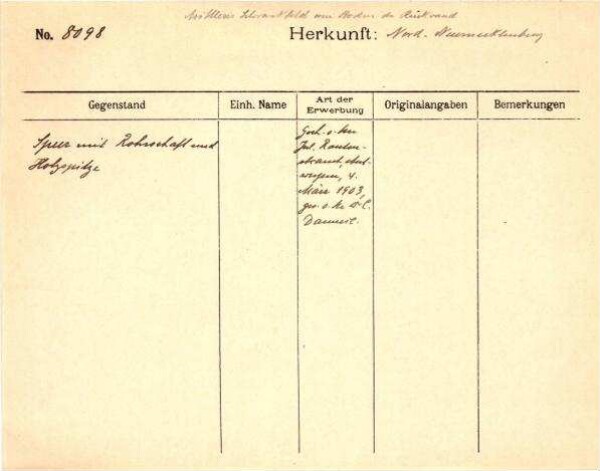 Mittleres Schrankfeld am Boden der Rückwand
No. 8098 Herkunft: Nord-Neumecklenburg
Gegenstand Einh. Name Art der Erwerbung Originalangaben Bemerkungen
Speer mit Rohrschaft und
Holzspitze
Gesch. v. Frn
Jul. Rauten-
strauch, Ant-
werpen, 4.
März 1903,
ges. v. Hr. C.